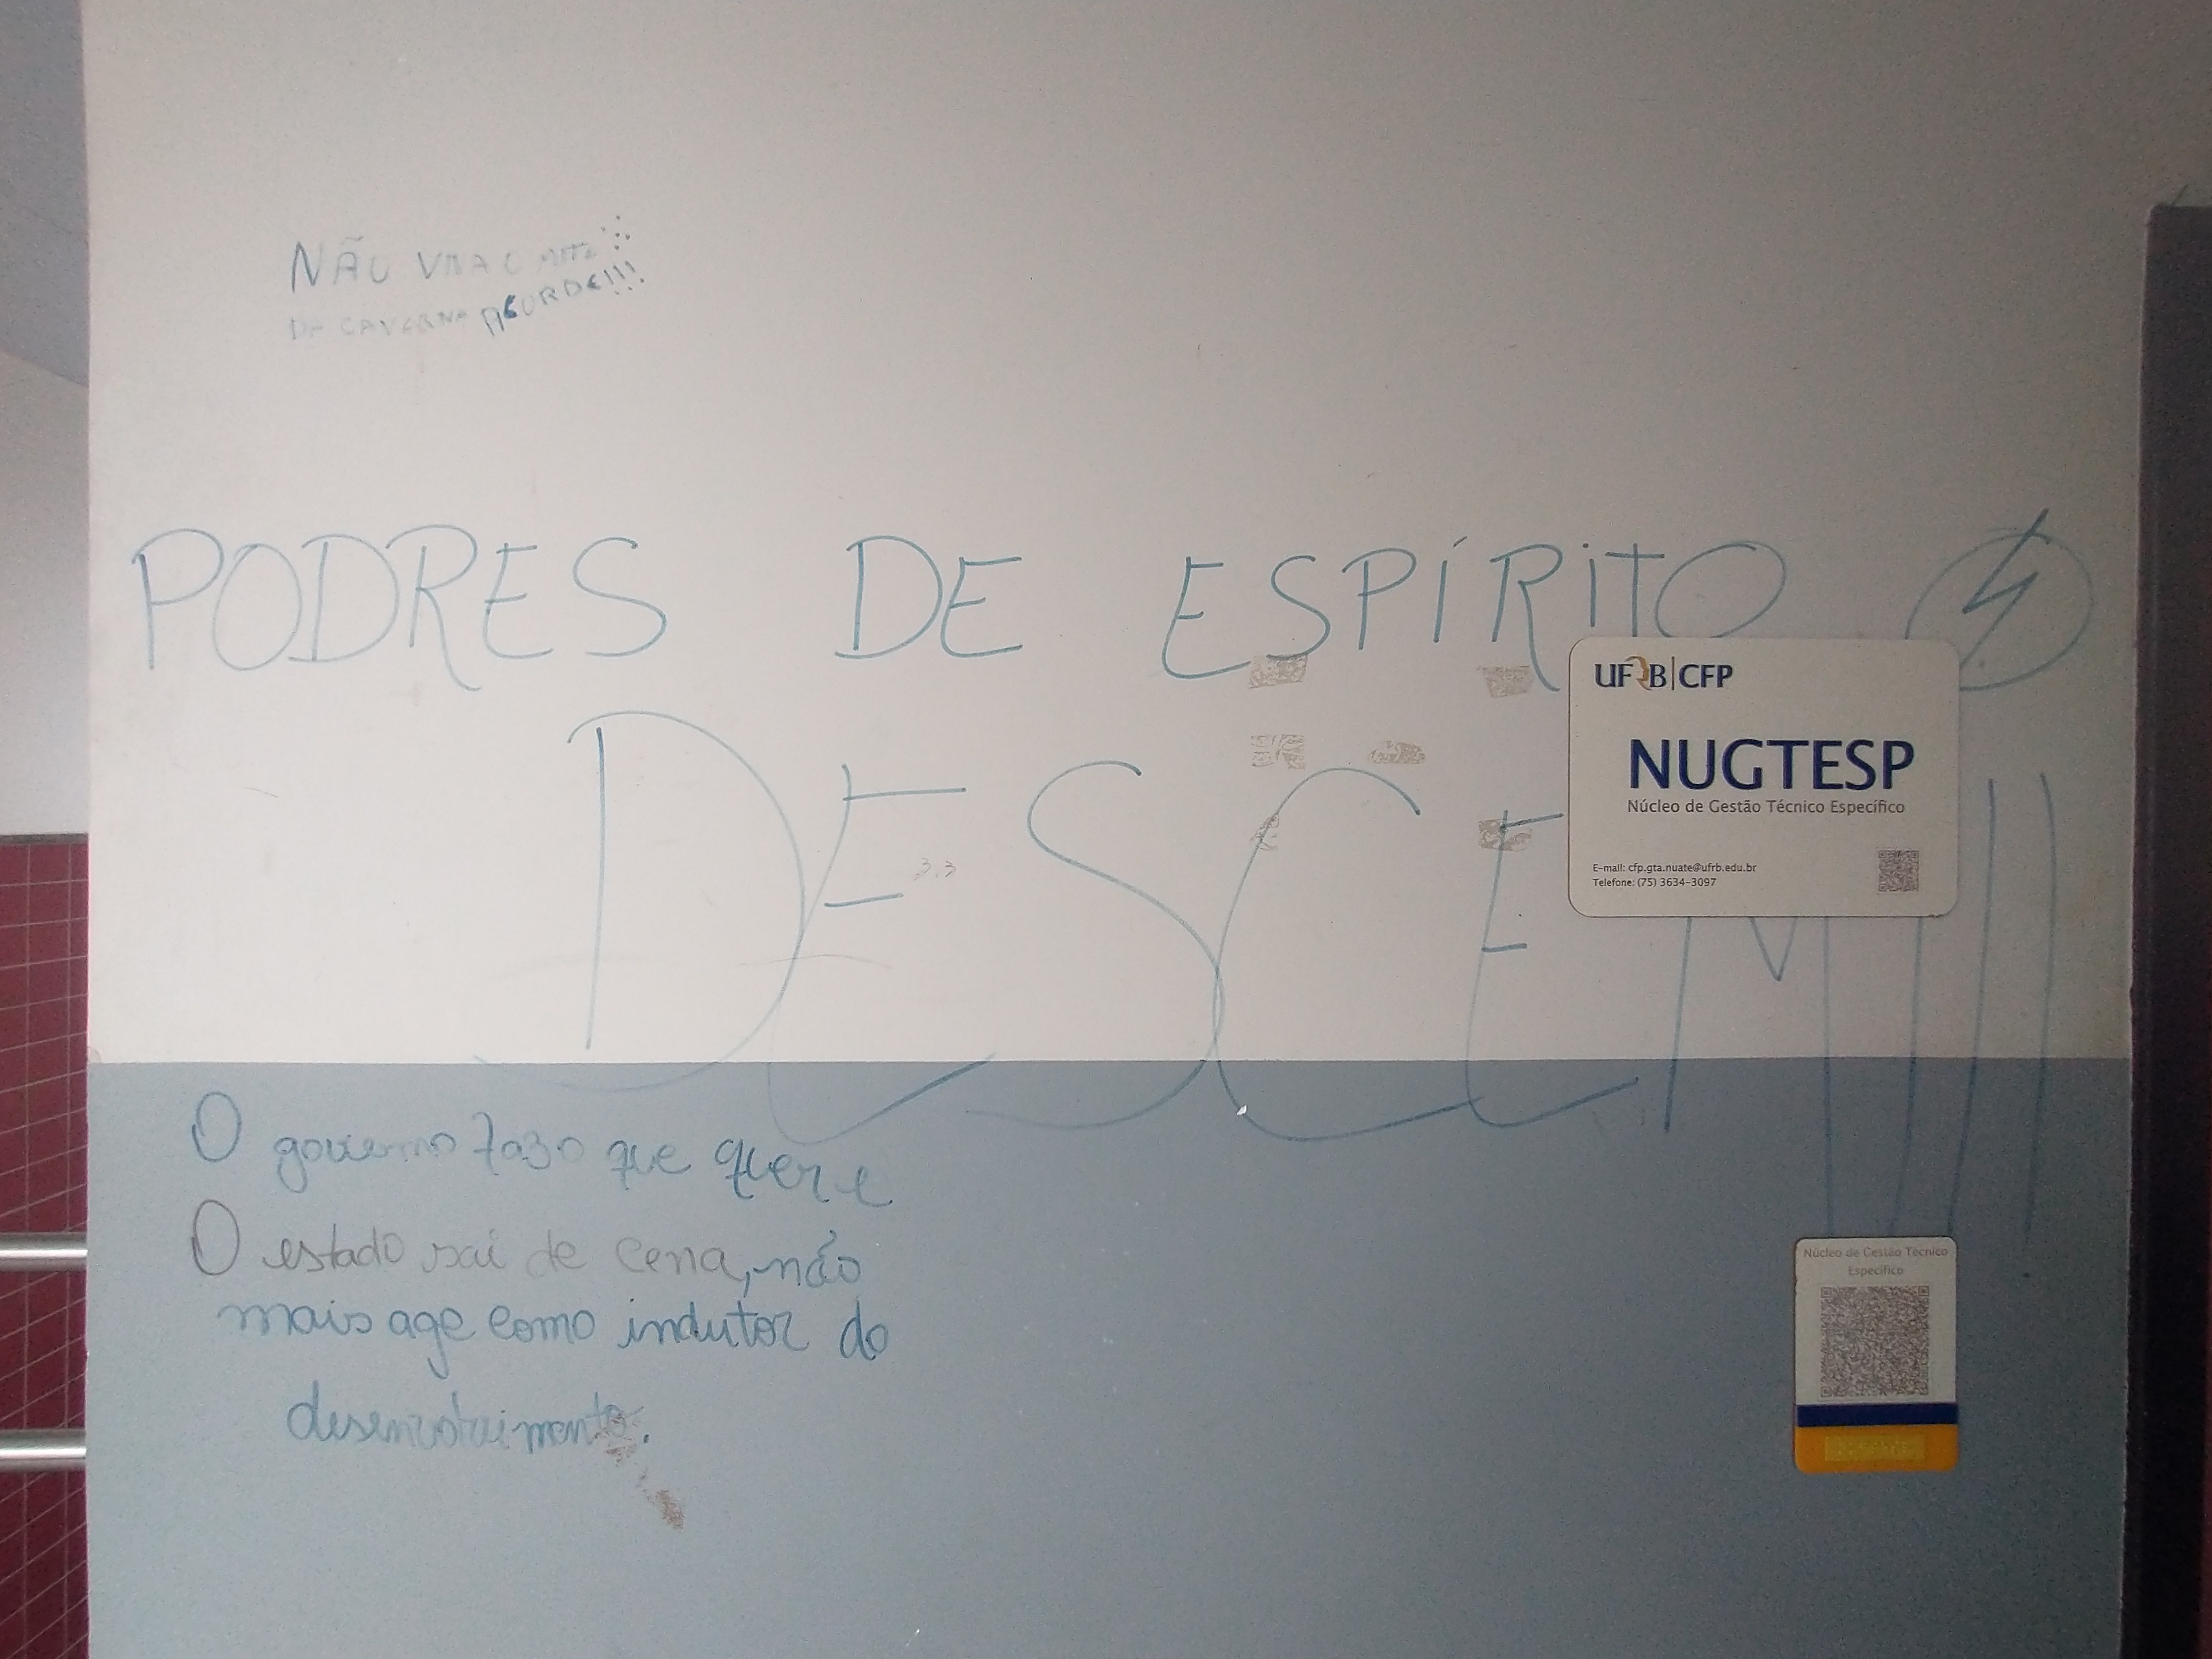 NÃO VIVA O MITO
DA CAVERNA ACORDE!!!
PODRES DE ESPÍRITO
DESCEM!!
UFRB|CFP
NUGTESP
Núcleo de Gestão Técnico Específico
E-mail: cfp.gta.nuate@ufrb.edu.br
Telefone: (75) 3634-3097
3.3
O governo faz o que quer e
O estado sai de cena, não
mais age como indutor do
desenvolvimento.
Núcleo de Gestão Técnico
Específico